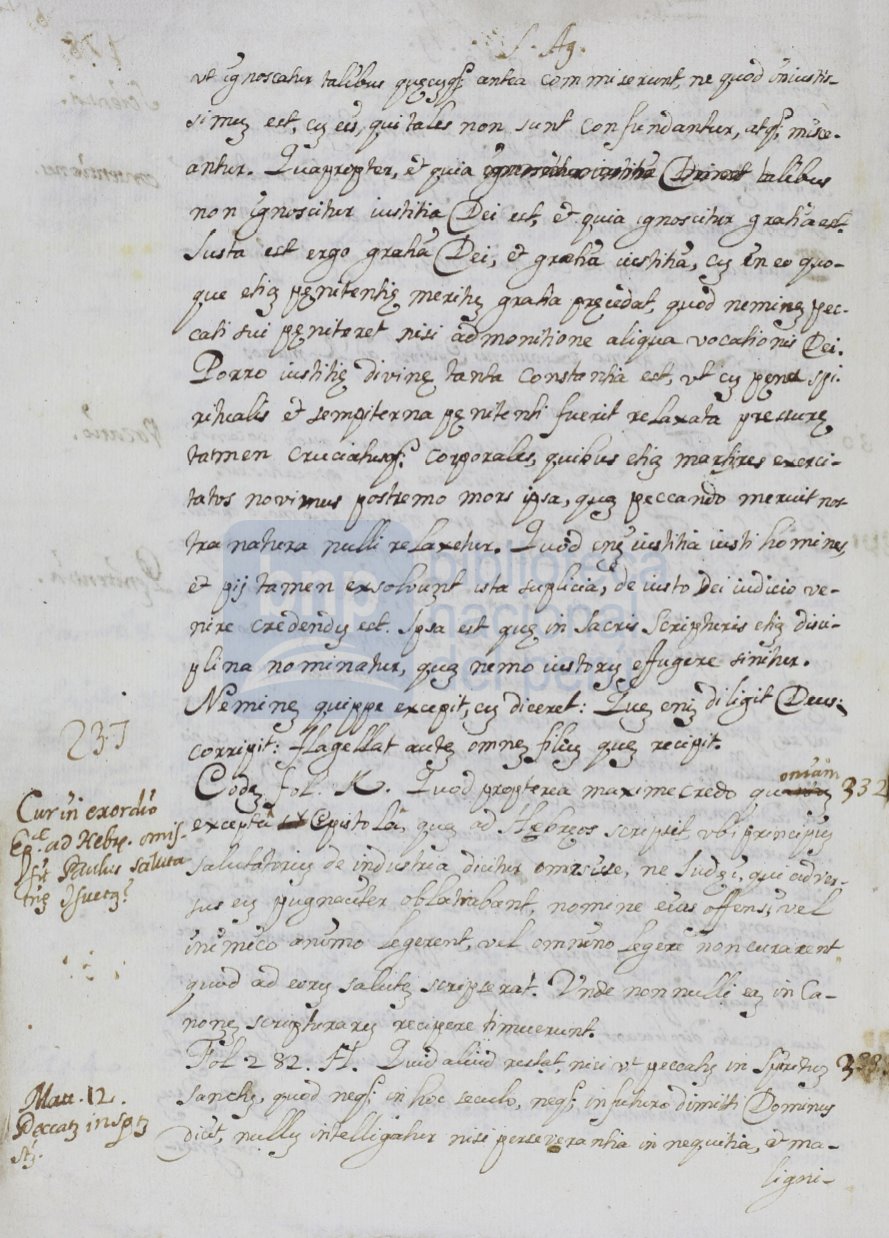 S. Ag.
vt ignoscatur talibus quęcuqȝ antea commiserunt, ne quod iniustis-
simuȝ est, cuȝ eis, qui tales non sunt confundantur, atqȝ misce-
antur. Quapropter, et quia talibus
non ignoscitur iustitia Dei est, et quia ignoscitur gratia est.
Iusta est ergo gratia Dei, et gratia iustitia, cuȝ in eo quo-
que etiaȝ pęnitentię merituȝ gratia pręcedat, quod nemineȝ pec-
cati sui pęniteret nisi admonitione aliqua vocationis Dei.
Porro iustitię divinę tanta constantia est, vt cuȝ pęna spi-
ritualis et sempiterna pęnitenti fuerit relaxata pressurę
tamen cruciatusqȝ corporales, quibus etiaȝ martires exerci-
tatos novimus postremo mors ipsa, quaȝ peccando meruit nos-
tra natura nulli relaxetur. Quod enȝ iustitia iusti homines,
et pij tamen exsolvunt ista suplicia, de iusto Dei iudicio ve-
nire credenduȝ est. Ipsa est quę in sacris scripturis etiaȝ disci-
plina nominatur, quaȝ nemo iustoruȝ effugere sinitur.
Nemineȝ quippe excepit, cuȝ diceret: Queȝ eniȝ diligit Deus:
corripit: flagellat auteȝ omneȝ filiuȝ queȝ recipit.
237
Codeȝ fol. K. Quod propterea maxime credo quoniam 332
excepta Epistola, quaȝ ad Hebręos scripsit vbi principiuȝ
salutatoriuȝ de industria dicitur omisisse, ne Iudęi, qui adver-
sus eȝ pugnaciter oblatrabant, nomine eius offensi vel
inimico animo legerent, vel omnino legere non curarent
quod ad eoruȝ saluteȝ scripserat. Vnde nonnulli eaȝ in Ca-
noneȝ scripturaruȝ recipere timuerunt.
Cur in exordio
Ep.æ ad Hebrę. omis-
sit Paulus saluta
Fol 282. H. Quid aliud restat, nisi vt peccatuȝ in Spirituȝ 333
sanctuȝ, quod neqȝ in hoc seculo, neqȝ in futuro dimitti Dominus
dicit, nulluȝ intelligatur nisi perseverantia in nequitia, et ma-
ligni-
Matt. 12.
Peccatȝ in spȝ
stȝ.
bnp biblioteca
nacional
del perú